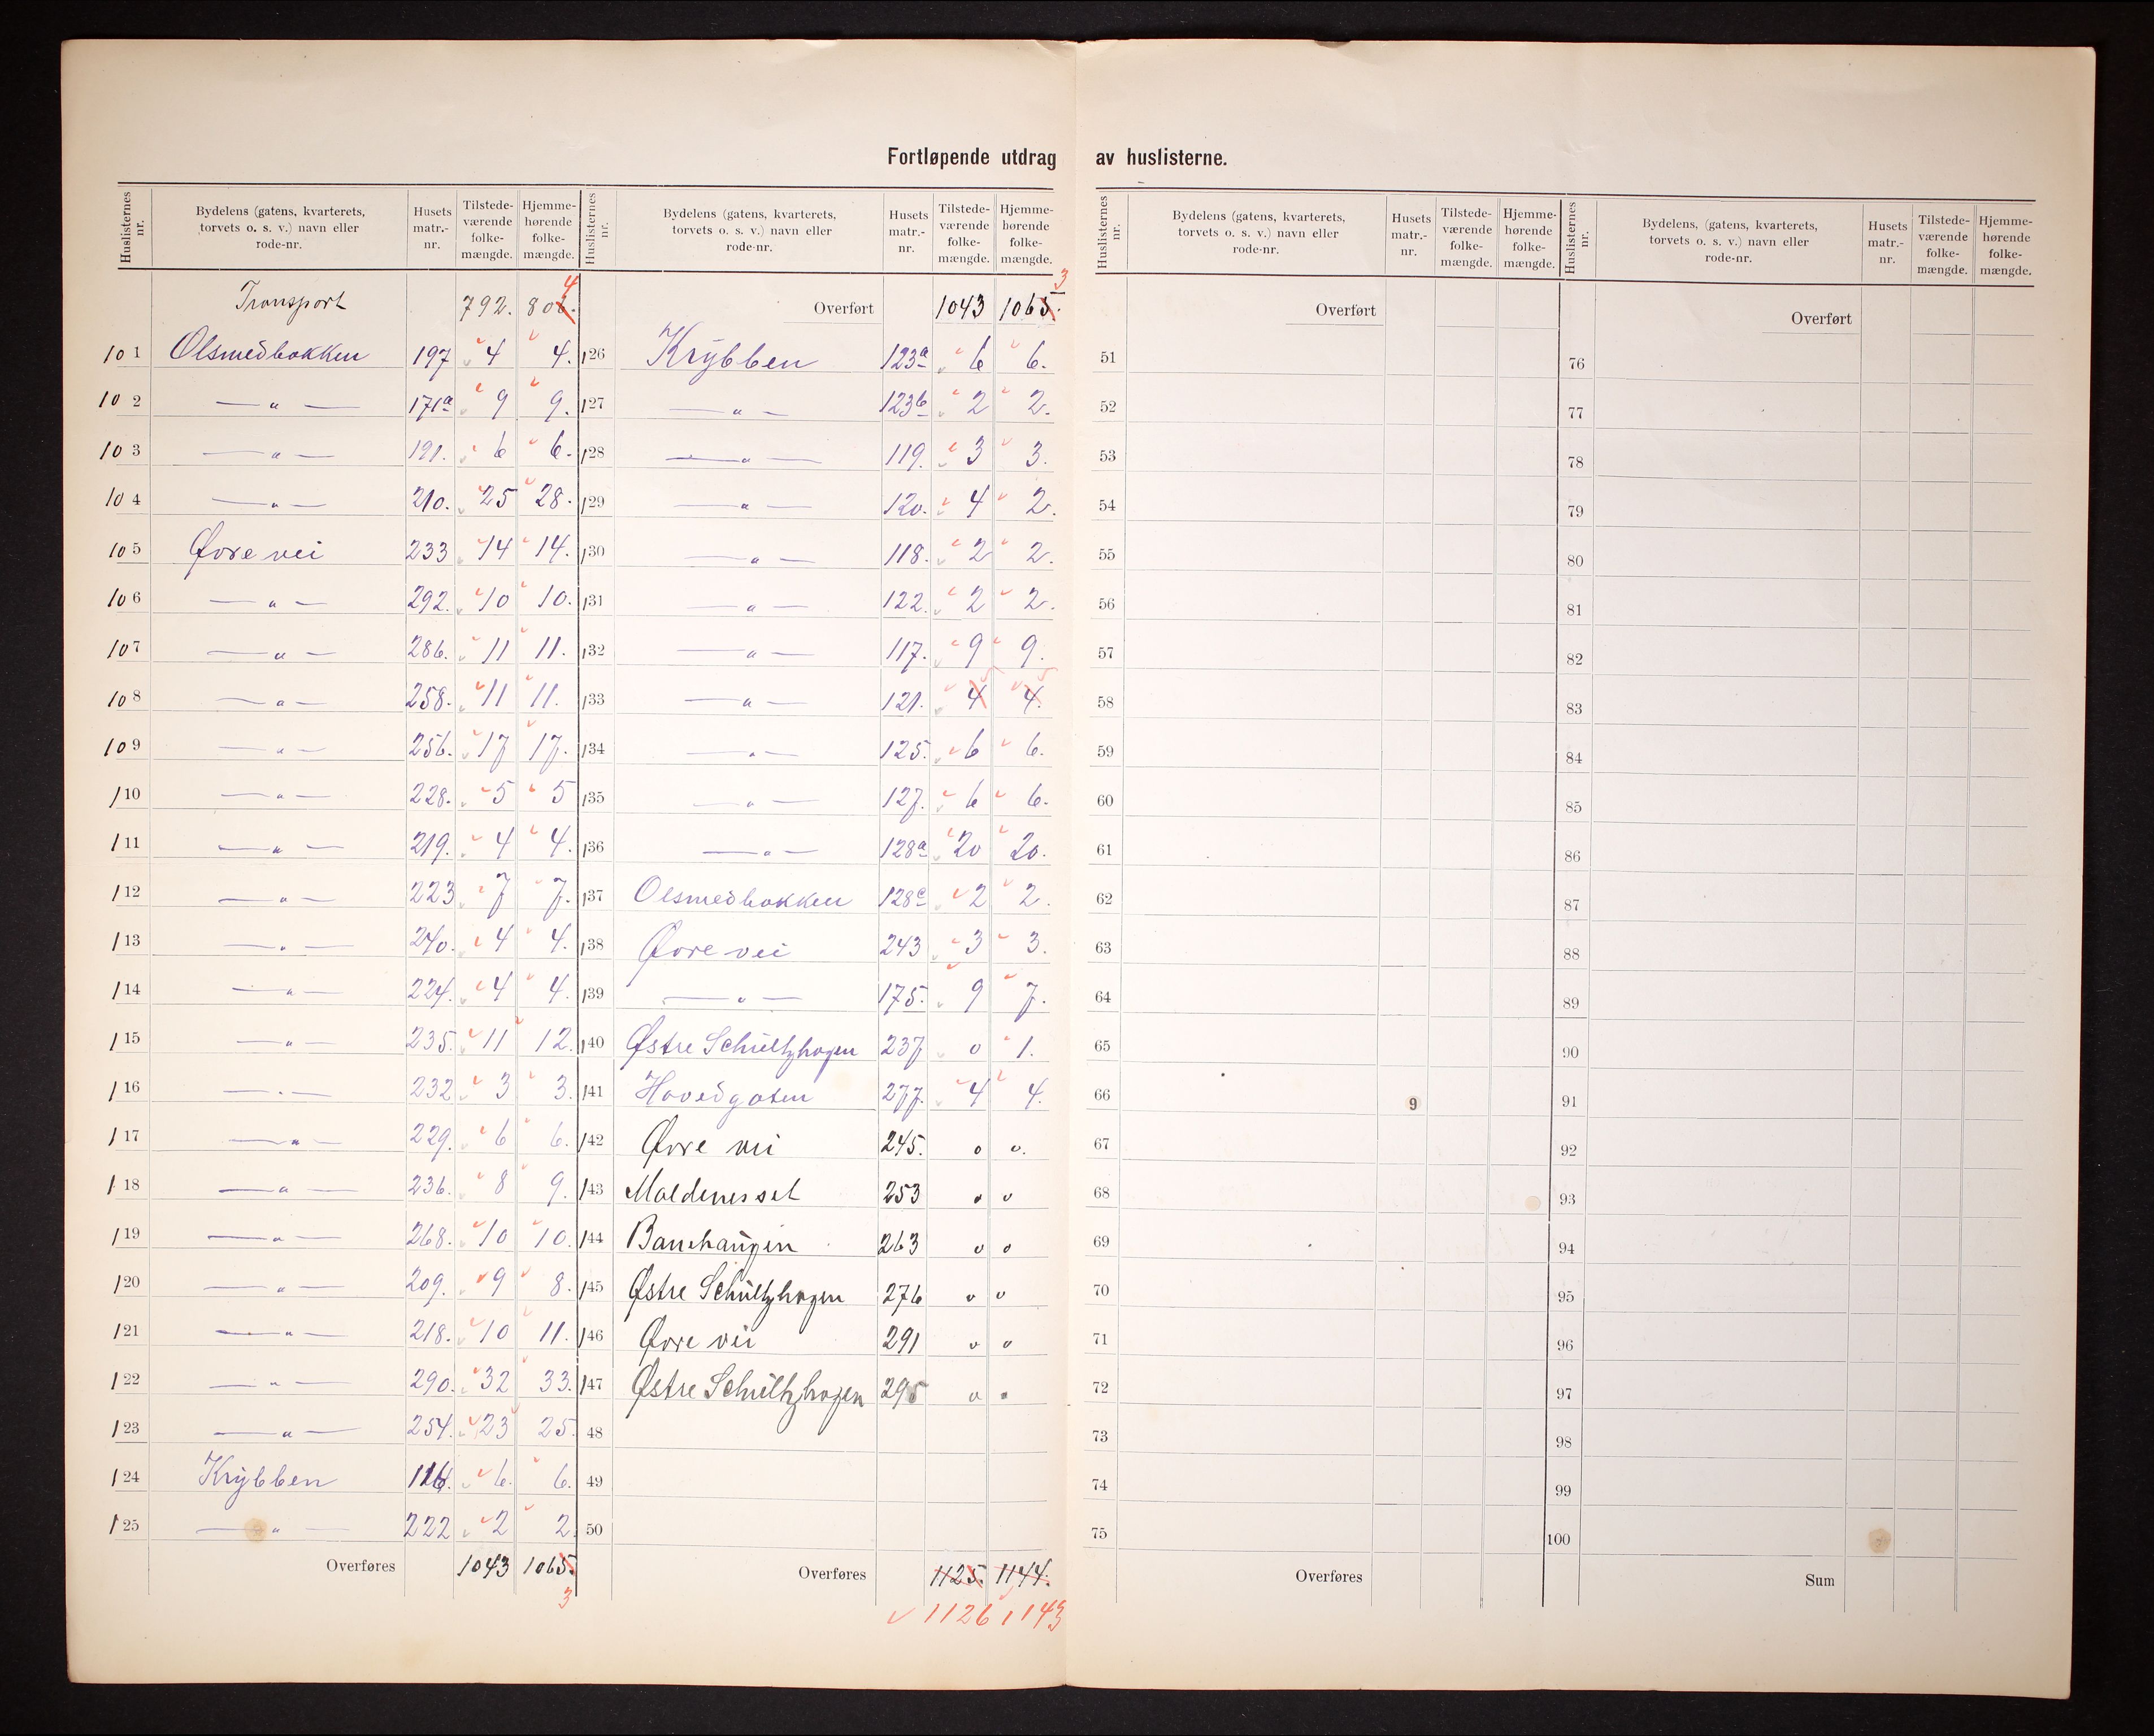 Fortløpende utdrag av huslisterne.
Huslisternes nr. | Bydelens (gatens, kvarterets, torvets o. s. v.) navn eller rode-nr. | Husets matr.-nr. | Tilstede-værende folke-mængde. | Hjemme-hørende folke-mængde.
Transport 792. 804
101 Olsmedbakken 197 4 4.
102 — " — 171a 9 9.
103 — " — 191. 6 6.
104 — " — 210. 25 28.
105 Øvre vei 233 14 14.
106 — " — 292. 10 10.
107 — " — 286. 11 11.
108 — " — 258. 11 11.
109 — " — 256. 17 17.
110 — " — 228. 5 5
111 — " — 219. 4 4.
112 — " — 223 7 7.
113 — " — 240. 4 4.
114 — " — 224. 4 4.
115 — " — 235. 11 12.
116 — " — 232 3 3.
117 — " — 229. 6 6.
118 — " — 236. 8 9.
119 — " — 268. 10 10.
120 — " — 209. 9 8.
121 — " — 218. 10 11.
122 — " — 290. 32 33.
123 — " — 254. 23 25.
124 Krybben 6. 6.
125 — " — 222 2 2.
Overføres 1043 1065. 3
Huslisternes nr. | Bydelens (gatens, kvarterets, torvets o. s. v.) navn eller rode-nr. | Husets matr.-nr. | Tilstede-værende folke-mængde. | Hjemme-hørende folke-mængde.
Overført 1043 1065. 3
126 Krybben 123a 6 6.
127 — " — 123b 2 2.
128 — " — 119. 3 3.
129 — " — 120. 4 2.
130 — " — 118. 2 2.
131 — " — 122. 2 2.
132 — " — 117. 9 9.
133 — " — 121. 4 5 4. 5
134 — " — 125. 6 6.
135 — " — 127. 6 6.
136 — " — 128a 20 20.
137 Olsmedbakken 128c 2 2.
138 Øvre vei 243 3 3.
139 — " — 175. 9 7.
140 Østre Schultzhagen 237 0 1.
141 Hovedgaten 277. 4 4.
142 Øvre vei 245. 0 0.
143 Moldenesset 253 0 0
144 Banehaugen 263 0 0
145 Østre Schultzhagen 276 0 0
146 Øvre vei 291 0 0
147 Østre Schultzhagen 295 0 0
48
49
50
Overføres 1125. 1144.
1126 1143
Huslisternes nr. | Bydelens (gatens, kvarterets, torvets o. s. v.) navn eller rode-nr. | Husets matr.-nr. | Tilstede-værende folke-mængde. | Hjemme-hørende folke-mængde.
Overført
51
52
53
54
55
56
57
58
59
60
61
62
63
64
65
66 9
67
68
69
70
71
72
73
74
75
Overføres
Huslisternes nr. | Bydelens, (gatens, kvarterets, torvets o. s. v.) navn eller rode-nr. | Husets matr.-nr. | Tilstede-værende folke-mængde. | Hjemme-hørende folke-mængde.
Overført
76
77
78
79
80
81
82
83
84
85
86
87
88
89
90
91
92
93
94
95
96
97
98
99
100
Sum